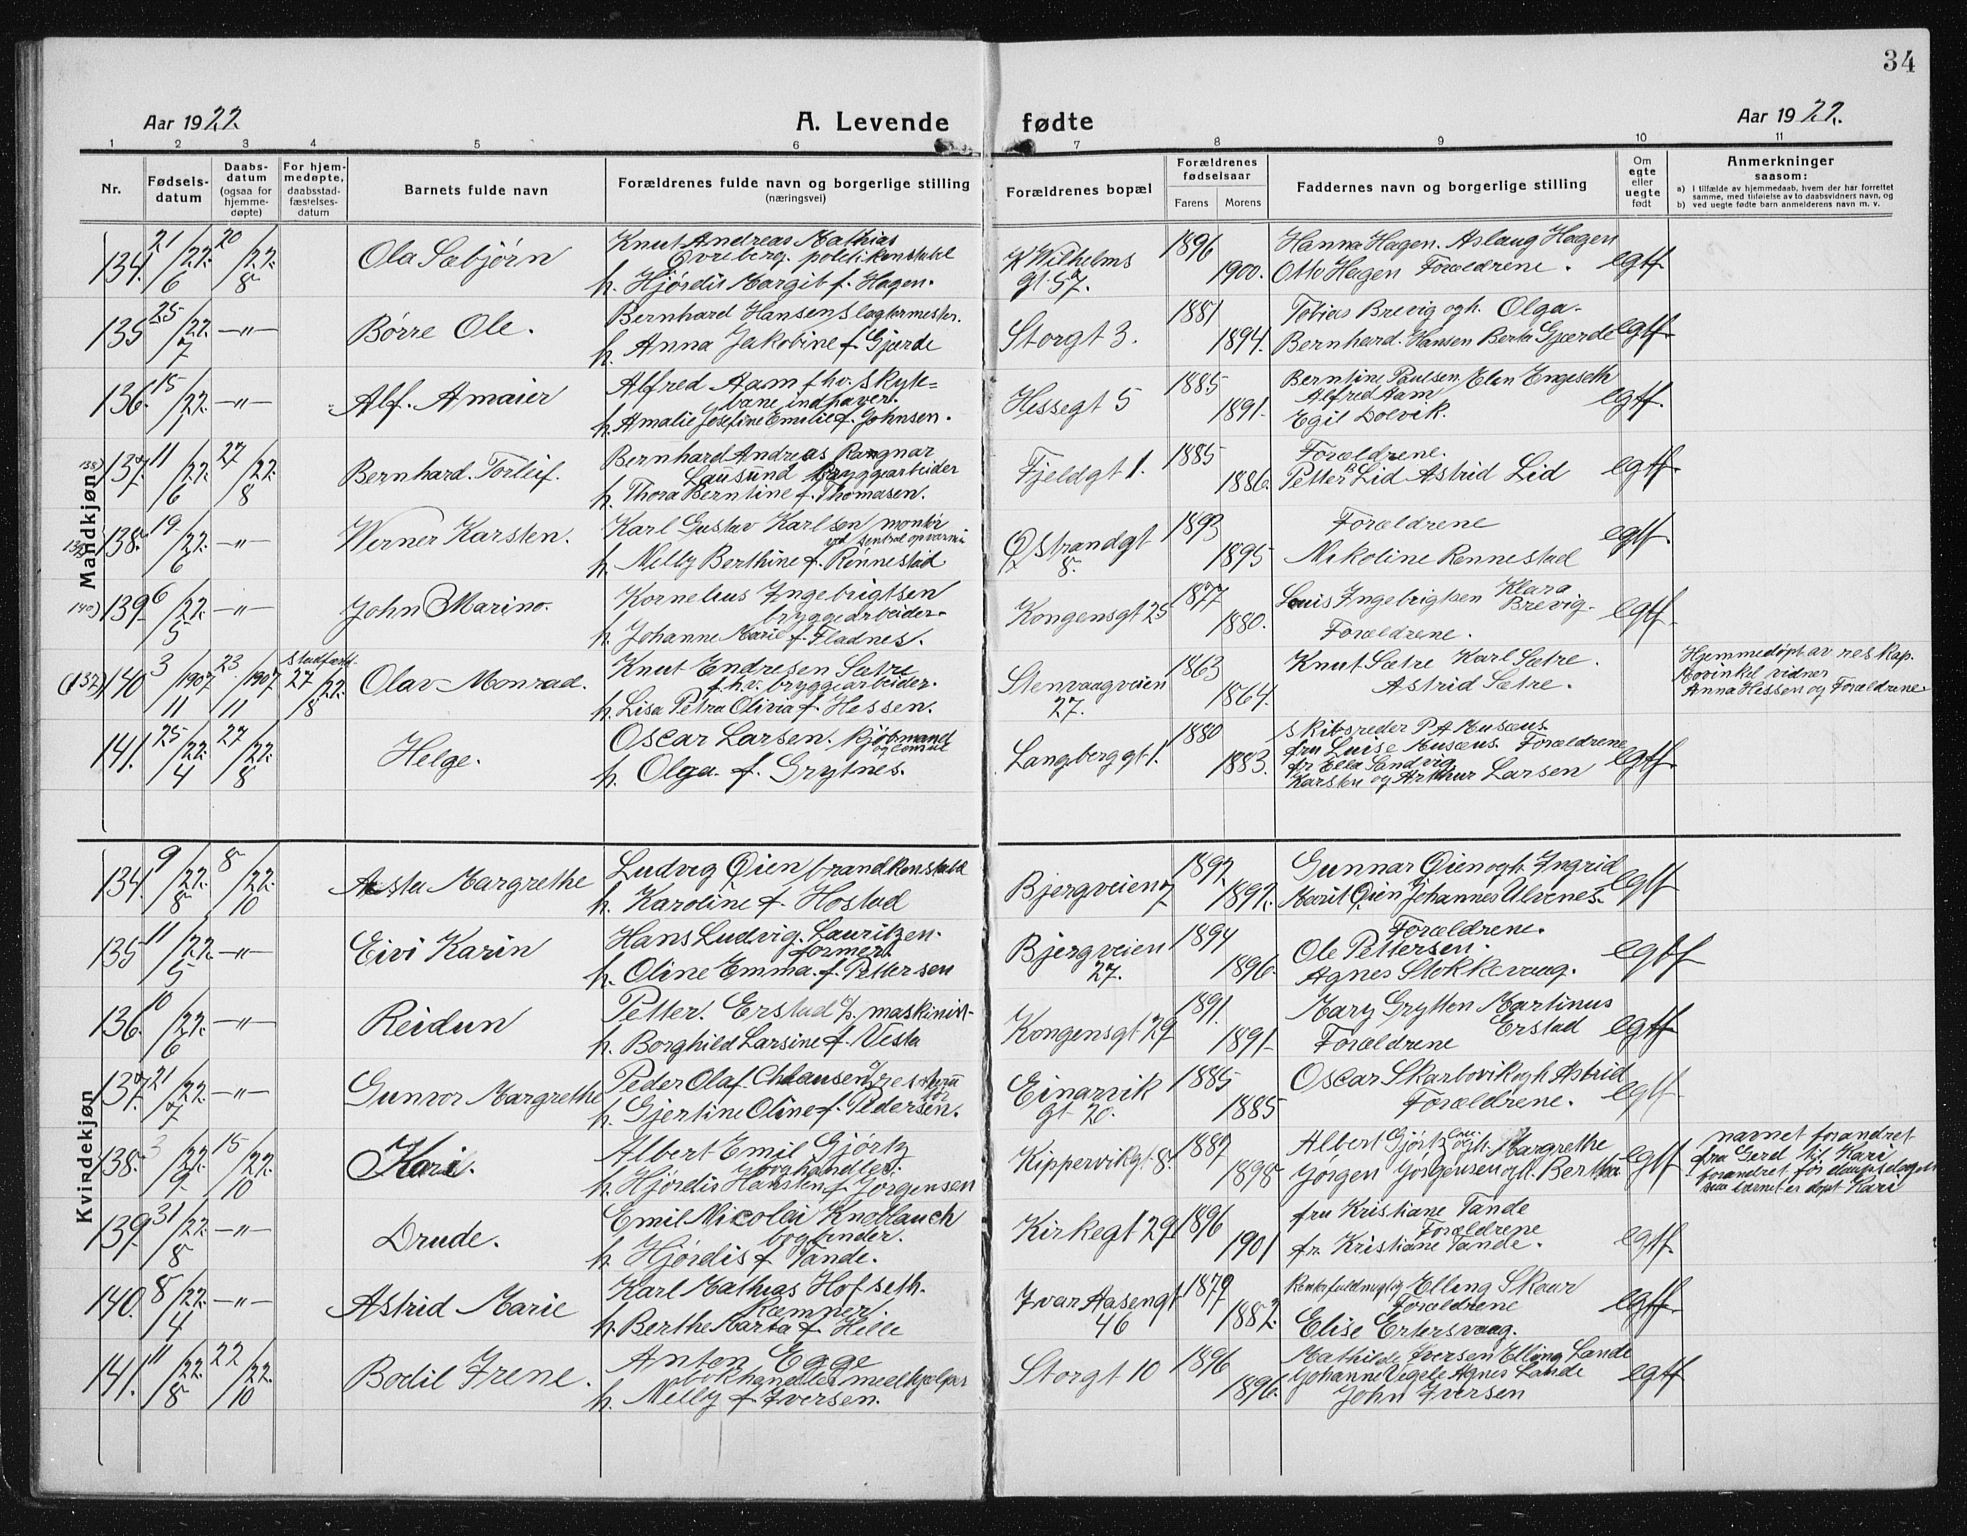 34
Aar 1922
A. Levende fødte
Aar 1922.
1 2 3 4 5 6 7 8 9 10 11
Nr.
Fødsels-
datum
Daabs-
datum
(ogsaa for
hjemme-
døpte)
For hjem-
medøpte,
daabsstad-
fæstelses-
datum
Barnets fulde navn
Forældrenes fulde navn og borgerlige stilling
(næringsvei)
Forældrenes bopæl
Forældrenes
fødselsaar
Farens Morens
Faddernes navn og borgerlige stilling
Om
egte
eller
uegte
født
Anmerkninger
saasom:
a) i tilfælde av hjemmedaab, hvem der har forrettet
samme, med tilføielse av to daabsvidners navn, og
b) ved uegte fødte barn anmelderens navn m. v.
Mandkjøn
134. 21/6 22. 20/8 22. Ola Sæbjørn
Knut Andreas Mathias
politikonstabel
h. Hjørdis Margit f. Hagen.
K Wilhelms
gt. 57.
1896
1900.
Hanna Hagen. Aslaug Hagen
Otto Hagen Forældrene.
egtf
135 25/7 22. —"— Børre Ole.
Bernhard Hansen slagtermester.
h. Anna Jakobine f. Gjerde
Storgt 3.
1881
1894.
Tobias Brevig ogh. Olga.
Bernhard. Hansen Berta Gjærde
egtf
136. 15/1 22. —"— Alf. Amaier
Alfred Aam fhv. skyte=
baneindhaver.
h. Amalie Josefine Emilie f. Johnsen.
Hessegt 5
1885
1891.
Berntine Paulsen Elen Engeseth
Alfred Aam
Egil Dolvik.
egtf.
138) 137. 11/6 22. 27/8 22. Bernhard. Torleif.
Bernhard Andreas Ragnar
Lausund bryggearbeider
h. Thora Berntine f. Thomasen.
Fjeldgt 1.
1885
1886.
Forældrene.
Petter Lid Astrid Lid
egtf
138. 19/6 22. —"— Werner Karsten.
Karl Gustav Karlsen montør
ved sentral opvarmn.
h. Melly Berthine f. Rønnestad
Østrandgt
8.
1893
1895
Forældrene
Nikoline Rennestad
egtf.
140) 139. 6/5 22. —"— John Marino.
Kornelius Ingebrigtsen
bryggearbeider.
h. Johanne Marie f. Fladnes.
Kongensgt 25
1877
1880.
Louis Ingebrigtsen Klara
Brevig.
Forældrene.
egtf
(137) 140 3/11 1907 23/11 1907 stadfæst. 27/8 22. Olav Monrad.
Knut Endresen Sætre
f.h.v. bryggearbeider.
h. Lisa Petra Olivia f. Hessen.
Stenvaagveien
27.
1863
1864.
Knut Sætre Karl Sætre.
Astrid Sætre.
Hjemmedøpt av res kap.
Hovinkel vidner
Anna Hessen og Forældrene
141. 25/4 22. 27/8 22. Helge.
Oscar Larsen. kjøbmand
og consul
h. Olga f. Grytnes.
Langberggt 1.
1880
1883.
skibsreder P A Musæus.
fru Luise Musæus. Forældrene
fr Ella Sandvig
Karsten og Arthur Larsen
egtf
Kvindekjøn
134. 9/8 22. 8/10 22. Asta Margrethe
Ludvig Øien brandkonstabel
h. Karoline f. Hostad
Bjergveien 7
1892
1892.
Gunnar Øien ogh. Ingrid
Marit Øien Johannes Ulvenes.
egtf
135 11/5 22. —"— Eivi Karin
Hans Ludvig. Lauritzen.
former.
h. Oline Emma. f. Pettersen
Bjergveien
27.
1894
1896.
Forældrene.
Ole Pettersen.
Agnes Stokkevaag.
egtf
136. 10/6 22. —"— Reidun
Petter. Erstad maskinist.
h. Borghild Larsine f. Vestad
Kongensgt 29
1891.
1891.
Mary Grytten Martinus
Erstad
Forældrene
egtf
137. 21/7 22. —"— Gunvor Margrethe
Peder Olaf Chlausen
h. Gjertine Oline f. Pedersen.
Einarvik
gt 20
1885
1885
Oscar Skarbovik ogh Astrid
Forældrene.
egtf
138. 3/9 22. 15/10 22. Kari.
Albert Emil Gjørtz
boghandler.
h. Hjørdis Hansten f. Jørgensen
Kippervikgt 8.
1887
1898
Albert Gjørtz ogh. Margrethe
Jørgen Jørgensen ogh. Bertha
egtf
navnet forandret
fra Gerd til Kari
139. 31/8 22. —"— Drude.
Emil Nicolai Knoblauch
bogbinder.
h. Hjørdis f. Tande.
Kirkegt 29.
1896
1901
fru Kristiane Tande
Forældrene
fr. Kristiane Tande.
egtf
140. 8/4 22. —"— Astrid Marie
Karl Mathias Hofseth.
Kæmner.
h. Berthe Marta f. Helle
Ivar Aasengt
46
1879
1882.
Elling Skaar
Forældrene
Elise Ertersvaag.
egtf
141. 11/8 22. 22/10 22. Bodil Irene.
Anton Egge
bokhandlermedhjelper
h. Melly f. Iversen.
Storgt 10
1896
1896.
Mathilde Iversen Elling Lande
Johanne Vegele Agnes Lande
John Iversen
egtf